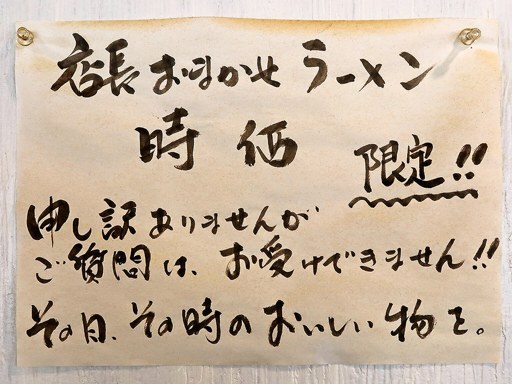 店長おまかせラーメン
時価
限定!!
申し訳ありませんが
ご質問は、お受けできません!!
その日、その時のおいしい物を。